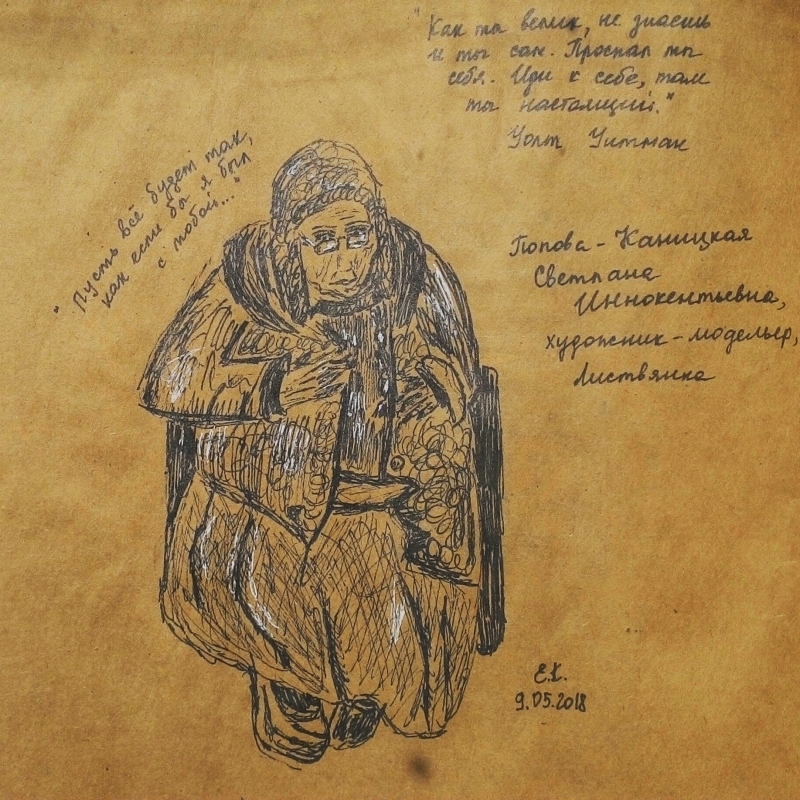 "Как ты велик, не знаешь
и ты сам. Проспал ты
себя. Иди к себе, там
ты настоящий."
Уолт Уитман
"Пусть всё будет так,
как если бы я был
с тобой..."
Попова-Каницкая
Светлана
Иннокентьевна,
художник-модельер,
Листвянка
Е.К.
9.05.2018